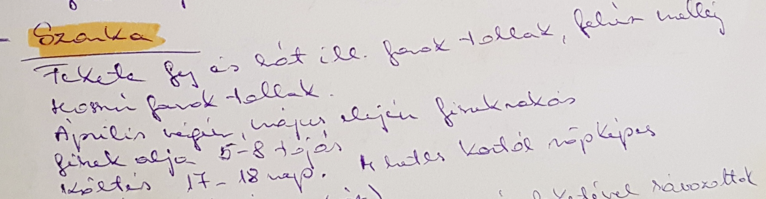 - Szarka
Fekete fej és hát ill. farok tollak, fehér mellej
Hosszú farok tollak.
Április végén, május elején fészekrakás
fészek alja 5-8 tojás
Költés 17-18 nap. 4 hetes kortól röpképes
sávozottak